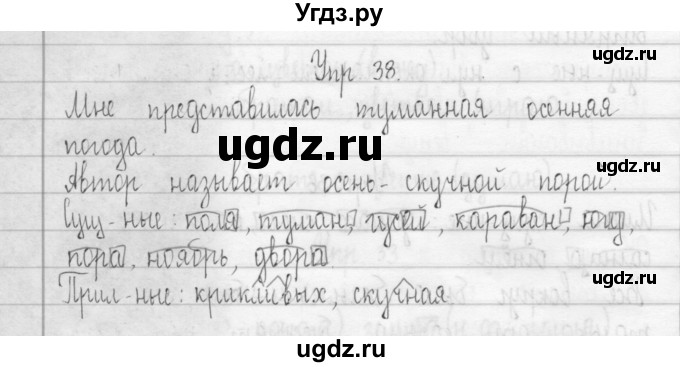 Угдз.ру
ugdz.ru
ugdz.ru
ugdz.ru
Упр 38.
Мне представилась туманная осенняя
погода.
ugdz.ru
Автор называет осень - скучной порой.
Сущ-ные: поля, туман, гусей, караван, югу,
пора, ноябрь, двора.
ugdz.ru
ugdz.ru
Прил-ные: крикливых, скучная
ugdz.ru